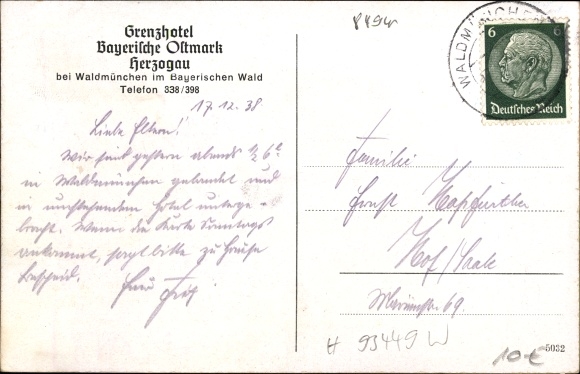 Grenzhotel
Bayerische Ostmark
Herzogau
bei Waldmünchen im Bayerischen Wald
Telefon 338/398
17.12.38
Liebe Eltern!
Wir sind gestern abend ½ 6h
in Waldmünchen gelandet und
in umstehendem Hotel unterge-
bracht. Wenn die Karte Sonntags
ankommt, sagt bitte zu Hause
Bescheid.
Euer Fritz
WALDMÜNCHEN
6 6
Deutsches Reich
Familie
Ernst
Hof/Saale
69.
93449 W
10 €
5032